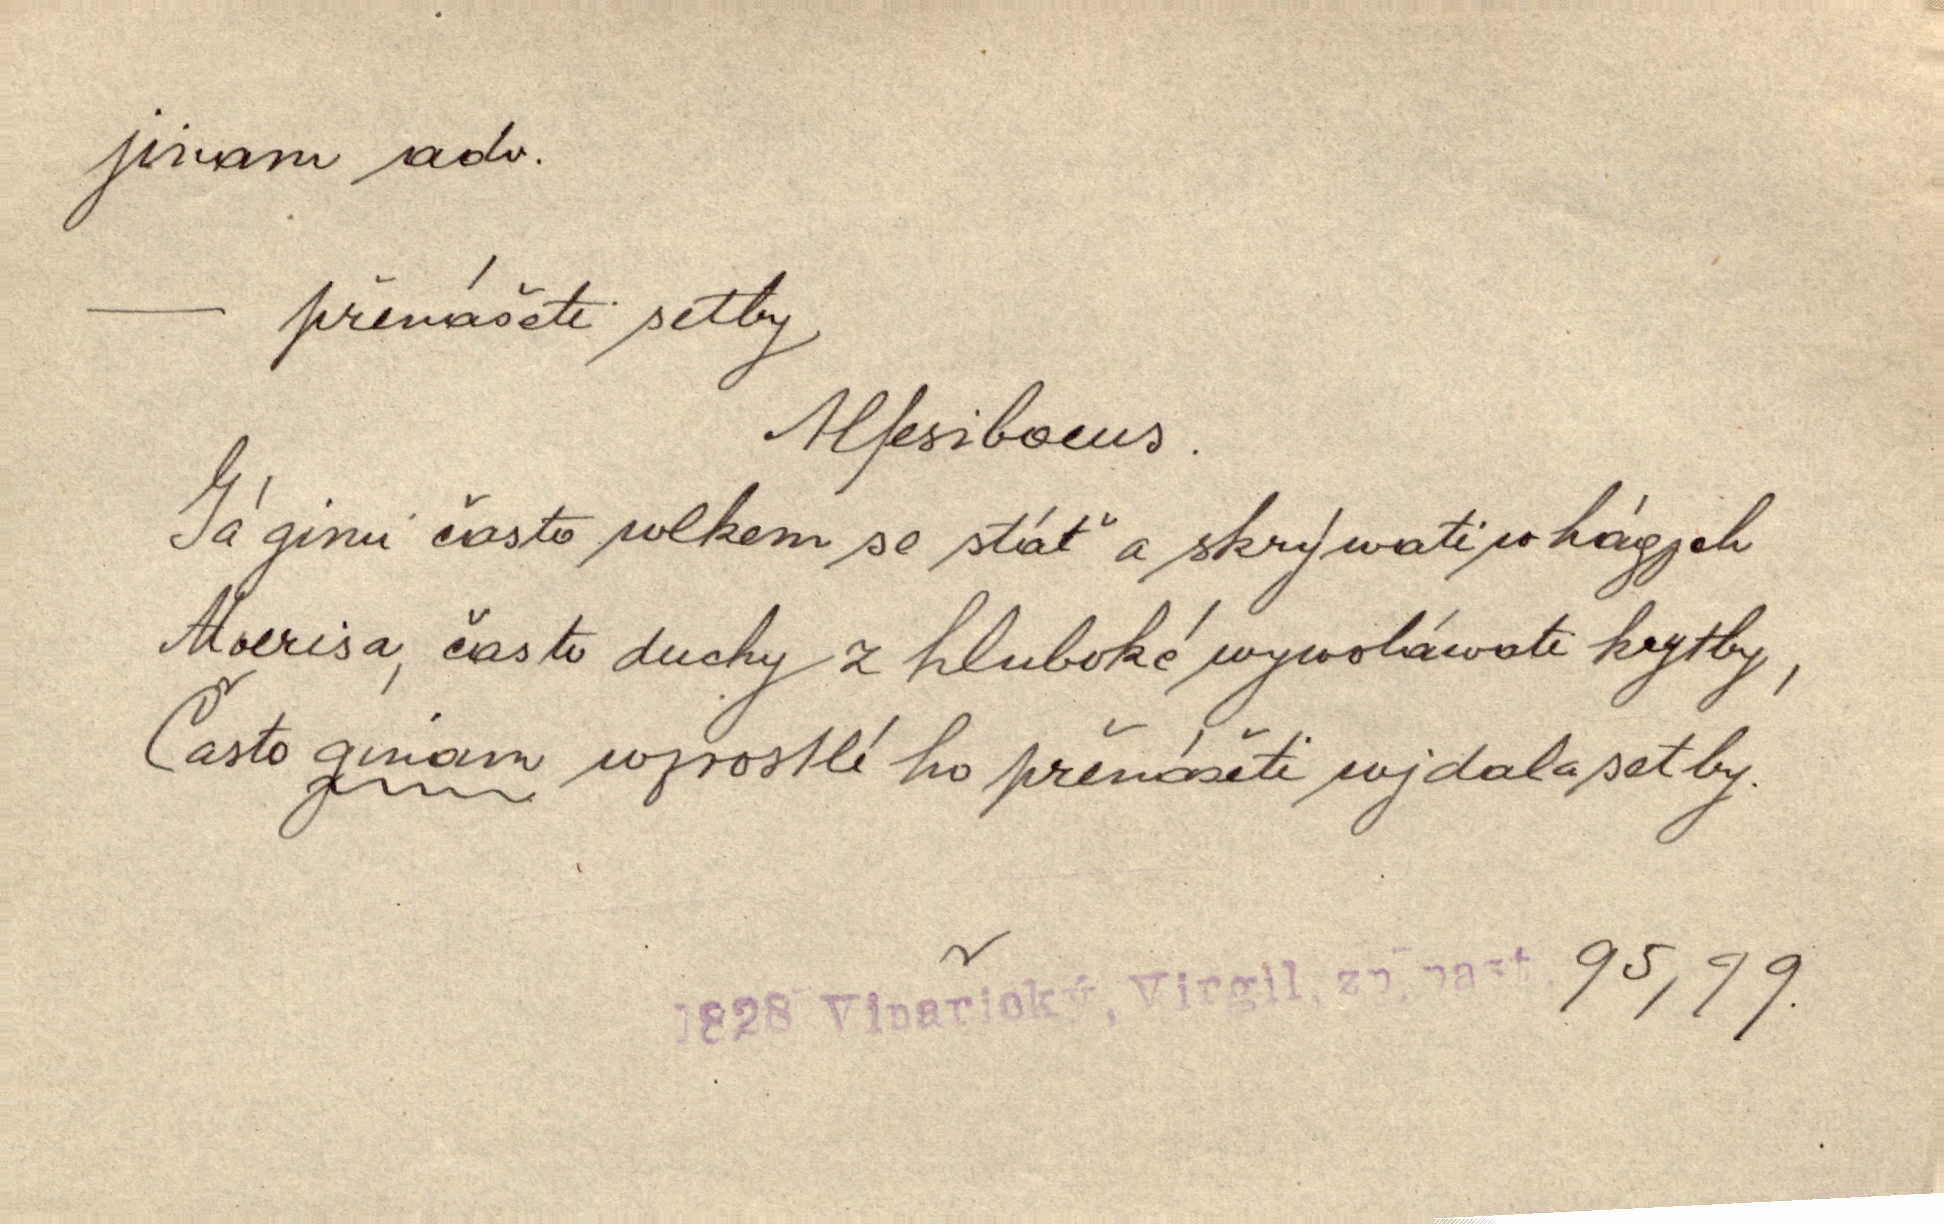 jinam adv.
— přenášeti setby
Alfesiboeus.
Já gimi často wlkem se stáť a skrýwati w hágjch
Moerisa, často duchy z hluboké wywoláwati krytby,
Často ginam wzrostlé ho přenášeti wjdala setby.
1828 Vinařický, Virgil, zp. past. 95, 99.